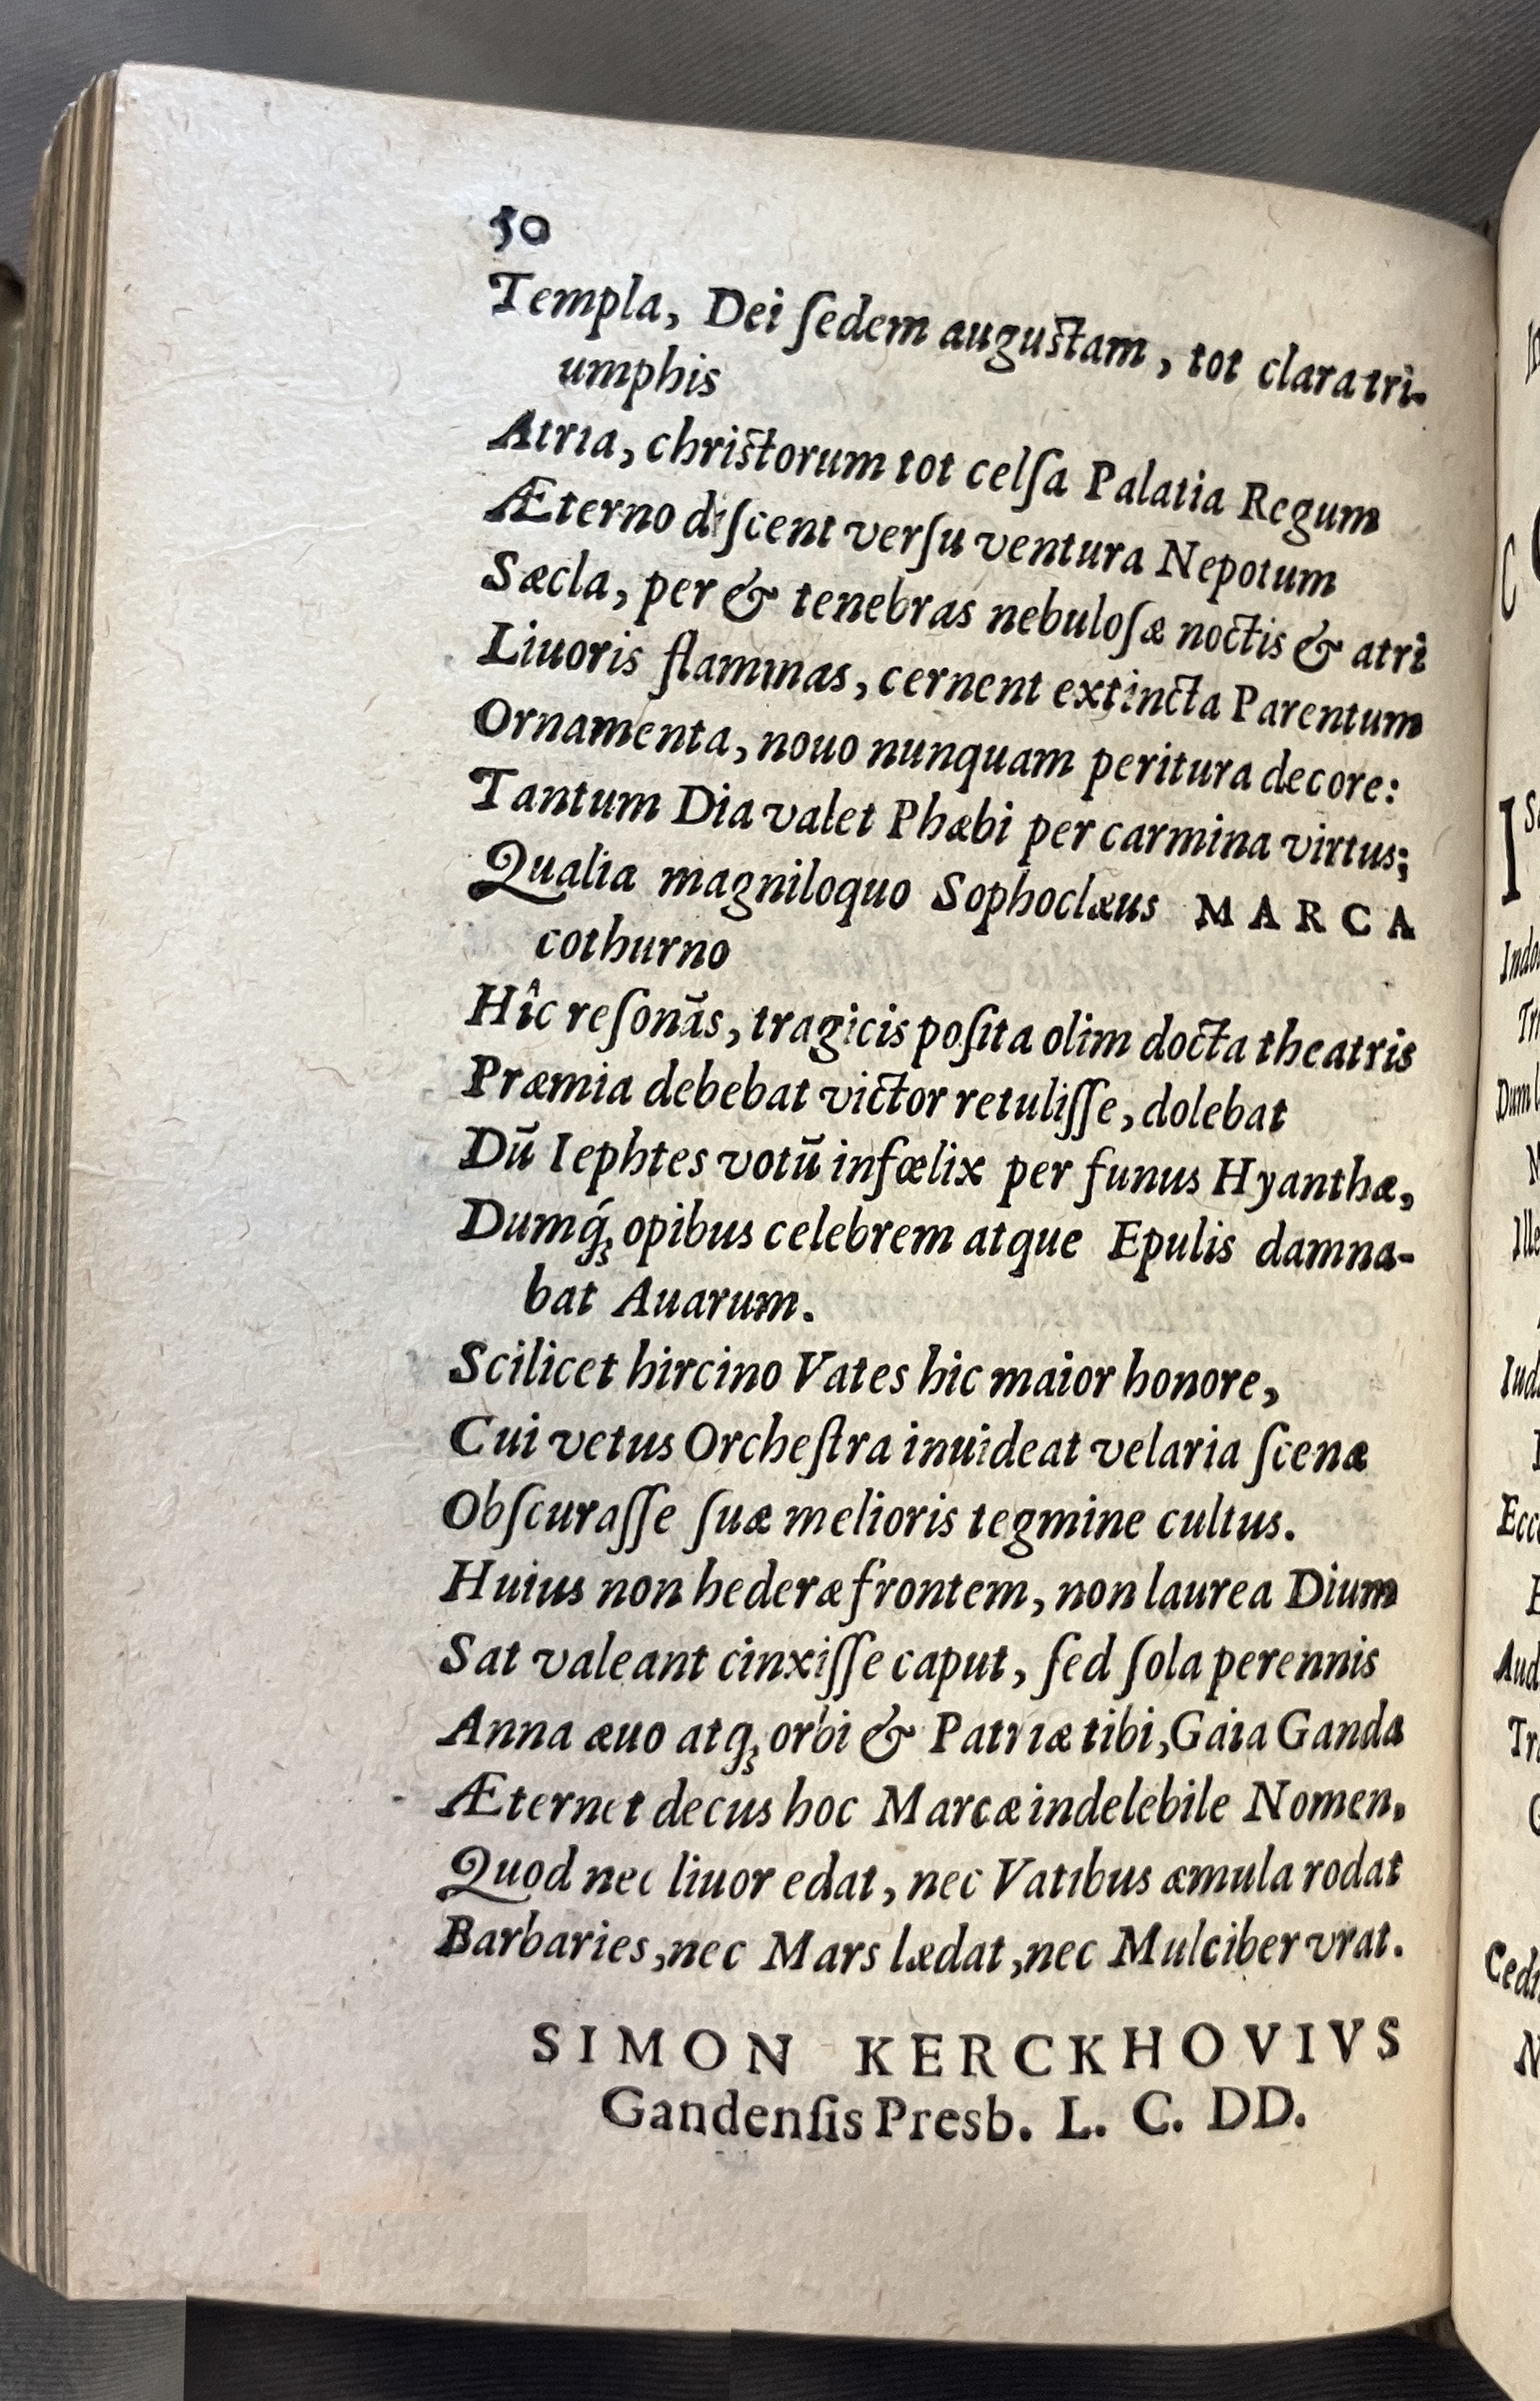 50
Templa, Dei ſedem auguſtam, tot clara tri-
umphis
Atria, chriſtorum tot celſa Palatia Regum
Æterno diſcent verſu ventura Nepotum
Sæcla, per & tenebras nebuloſæ noctis & atri
Liuoris flammas, cernent extincta Parentum
Ornamenta, nouo nunquam peritura decore:
Tantum Dia valet Phæbi per carmina virtus;
Qualia magniloquo Sophoclæus MARCA
cothurno
Hîc reſonãs, tragicis poſita olim docta theatris
Præmia debebat victor retuliſſe, dolebat
Dũ Iephtes votũ infœlix per funus Hyanthæ,
Dumq́; opibus celebrem atque Epulis damna-
bat Auarum.
Scilicet hircino Vates hic maior honore,
Cui vetus Orcheſtra inuideat velaria ſcenæ
Obſcuraſſe ſuæ melioris tegmine cultus.
Huius non hederæ frontem, non laurea Dium
Sat valeant cinxiſſe caput, ſed ſola perennis
Anna æuo atq; orbi & Patriæ tibi, Gaia Ganda
Æternet decus hoc Marcæ indelebile Nomen,
Quod nec liuor edat, nec Vatibus æmula rodat
Barbaries, nec Mars lædat, nec Mulciber vrat.
SIMON KERCKHOVIVS
Gandenſis Presb. L. C. DD.